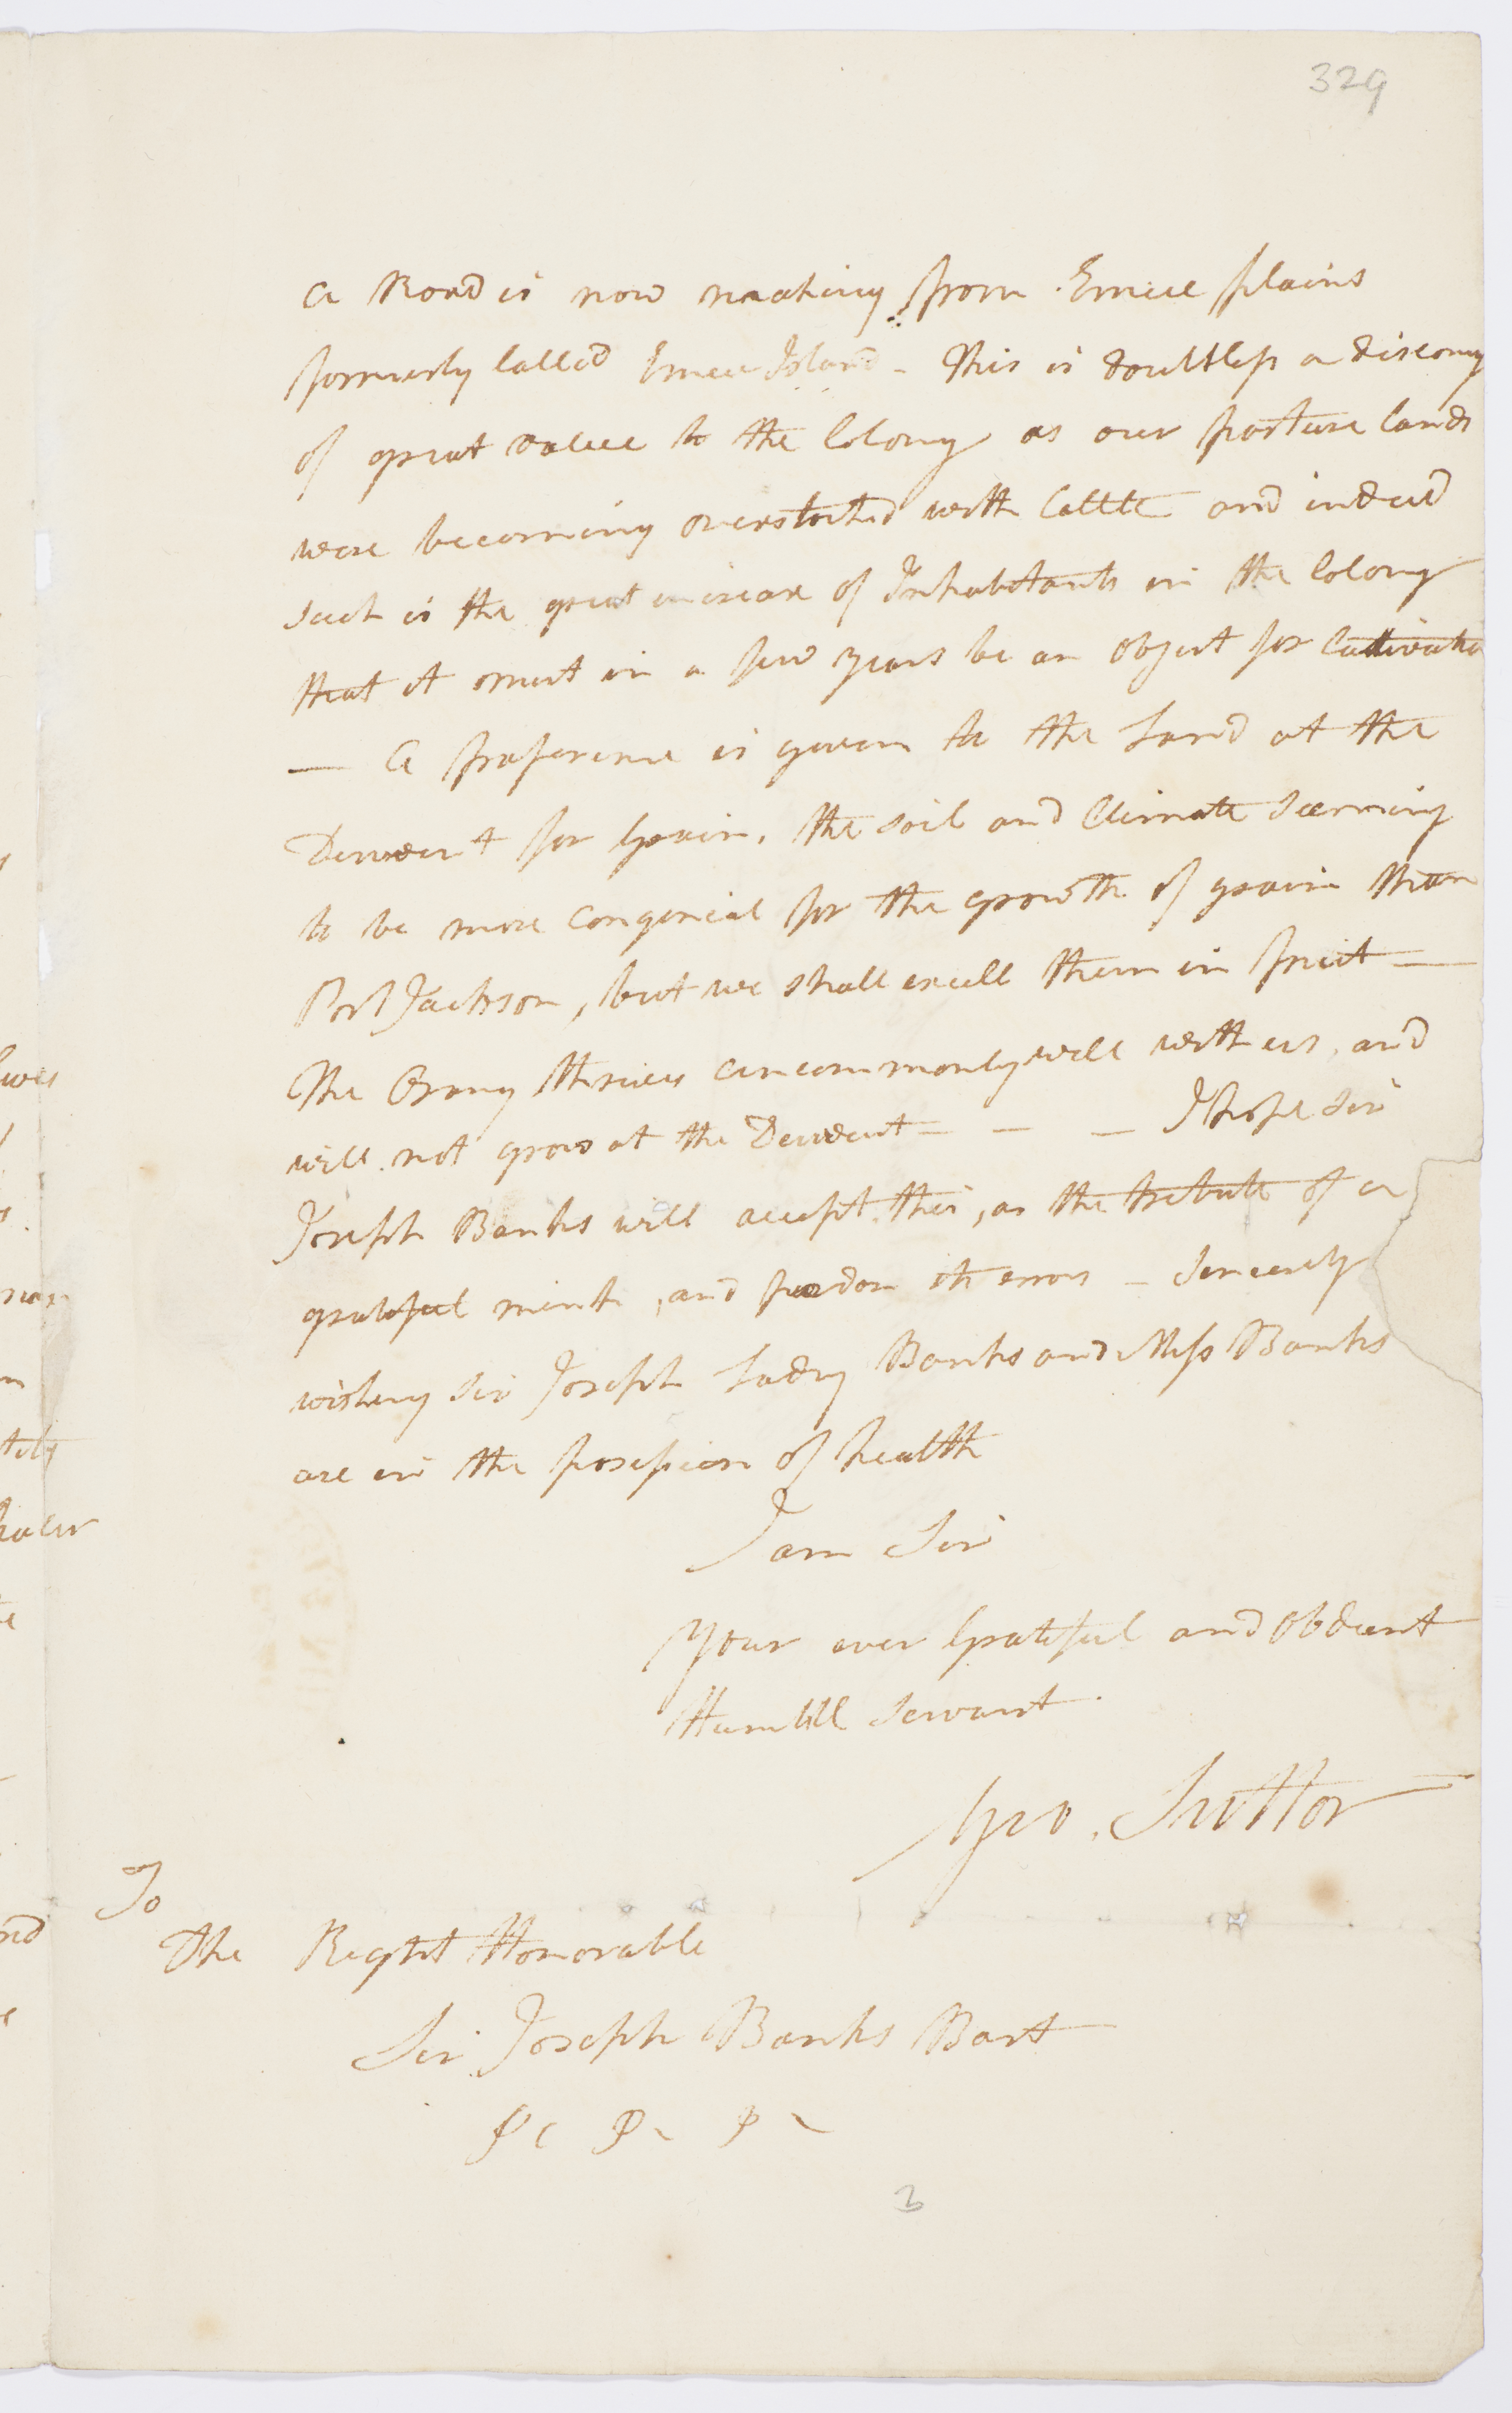 329
A Road is now making from Emeu plains
formerly called Emeu Island - This is doubtless a discovery
of great value to the Colony as our pasture lands
were becoming overstocked with Cattle and indeed
such is the great increase of Inhabitants in the Colony
that it must in a few years be an object for Cultivatio
— A preference is given to the Land at the
Derwent for Grain, the soil and Climate seeming
to be more congenial for the growth of grain than
Port Jackson, but we shall excell them in fruit —
The Orang thrives uncommonly well with us, and
will not grow at the Derwent — — — I hope Sir
Joseph Banks will accept this, as the tribute of a
grateful mind, and pardon its errors - Sincerely
wishing Sir Joseph Lady Banks and Miss Banks
are in the possession of health
I am Sir
Your ever Grateful and Obdient
Humble Servant.
Geo. Suttor
To
The Right Honorable
Sir Joseph Banks Bart
3